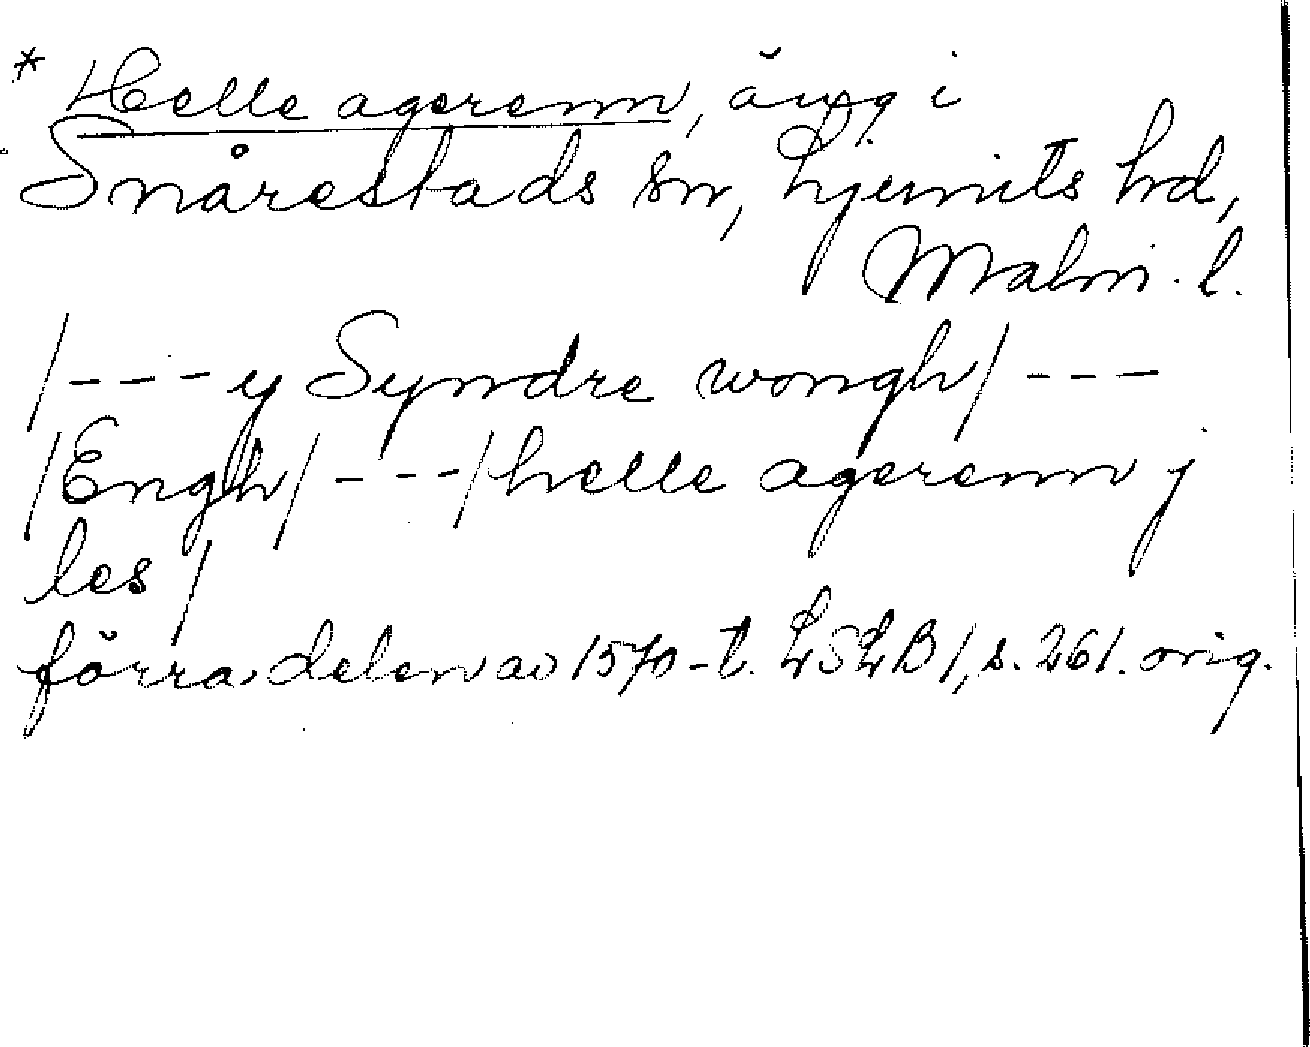 * Helle agerenn, äng i
Snårestads sn, Ljunits hd,
Malm. l.
/---y Syndre wongh/---
/Engh/---/helle agerenn j
les/
förra delen av 1570-t. LSLB 1, s. 261. orig.